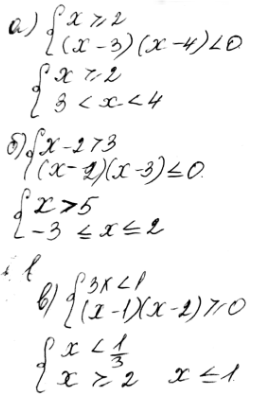 а) { x ≥ 2
(x - 3)(x - 4) < 0
{ x ≥ 2
3 < x < 4
б) { x - 2 > 3
(x - 2)(x - 3) ≤ 0
{ x > 5
-3 ≤ x ≤ 2
в) { 3x < 1
(x - 1)(x - 2) ≥ 0
{ x < 1/3
x ≥ 2 x ≤ 1